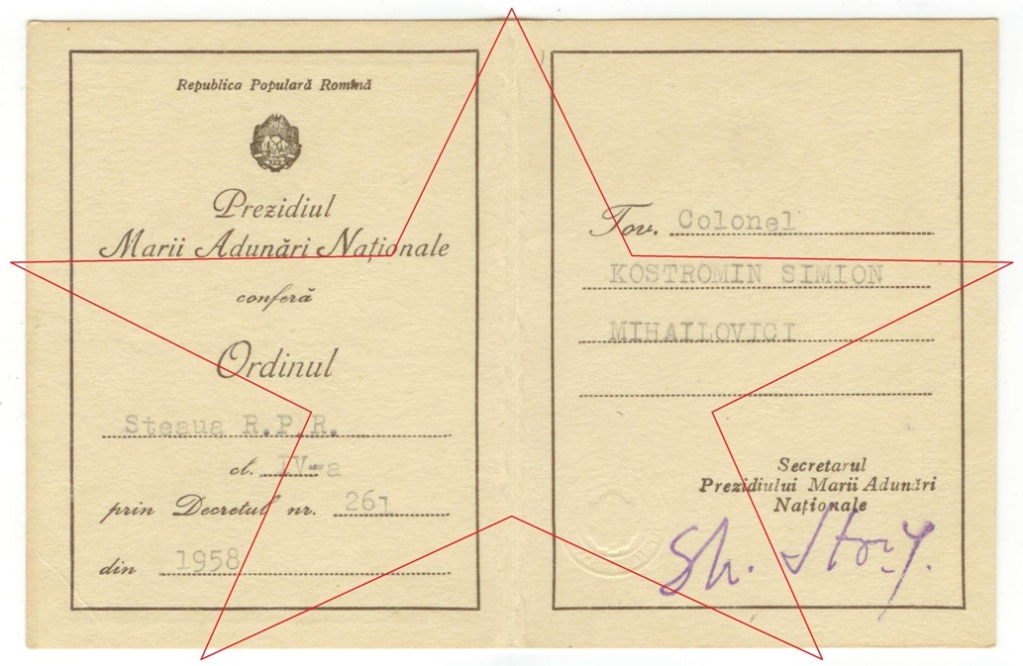 Republica Populară Romînă
Prezidiul
Marii Adunări Naționale
conferă
Ordinul
Steaua R.P.R.
cl. IV-a
prin Decretul nr. 261
din 1958
Tov. Colonel
KOSTROMIN SIMION
MIHAILOVICI
Secretarul
Prezidiului Marii Adunări
Naționale